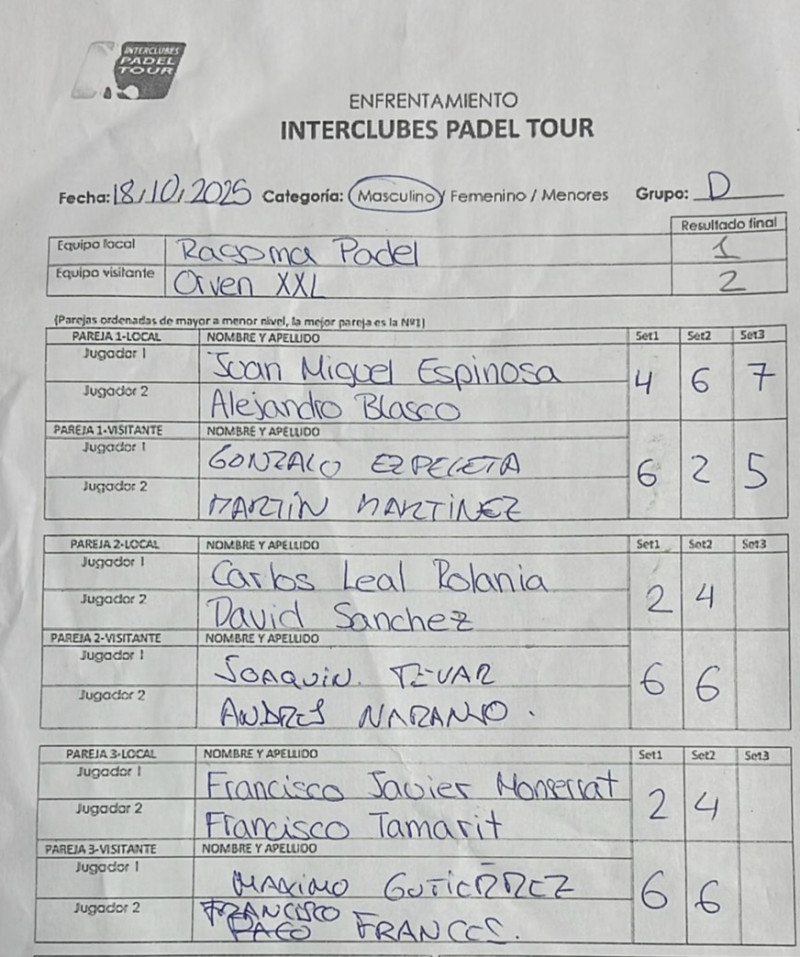 INTERCLUBES
PADEL
TOUR
ENFRENTAMIENTO
INTERCLUBES PADEL TOUR
Fecha: 18/10/2025 Categoría: Masculino / Femenino / Menores Grupo: D
Resultado final
Equipo local Racsoma Padel 1
Equipo visitante Orven XXL 2
(Parejas ordenadas de mayor a menor nivel, la mejor pareja es la Nº1)
PAREJA 1-LOCAL NOMBRE Y APELLIDO Set1 Set2 Set3
Jugador 1 Juan Miguel Espinosa
4 6 7
Jugador 2 Alejandro Blasco
PAREJA 1-VISITANTE NOMBRE Y APELLIDO
Jugador 1 GONZALO EZPELETA
6 2 5
Jugador 2 MARTÍN MARTINEZ
PAREJA 2-LOCAL NOMBRE Y APELLIDO Set1 Set2 Set3
Jugador 1 Carlos Leal Polania
2 4
Jugador 2 David Sanchez
PAREJA 2-VISITANTE NOMBRE Y APELLIDO
Jugador 1 JOAQUIN. TEVAR
6 6
Jugador 2 ANDRES NARANJO.
PAREJA 3-LOCAL NOMBRE Y APELLIDO Set1 Set2 Set3
Jugador 1 Francisco Javier Monserrat
2 4
Jugador 2 Francisco Tamarit
PAREJA 3-VISITANTE NOMBRE Y APELLIDO
Jugador 1 MAXIMO GUTIERREZ
6 6
Jugador 2 FRANCISCO
PACO FRANCES.